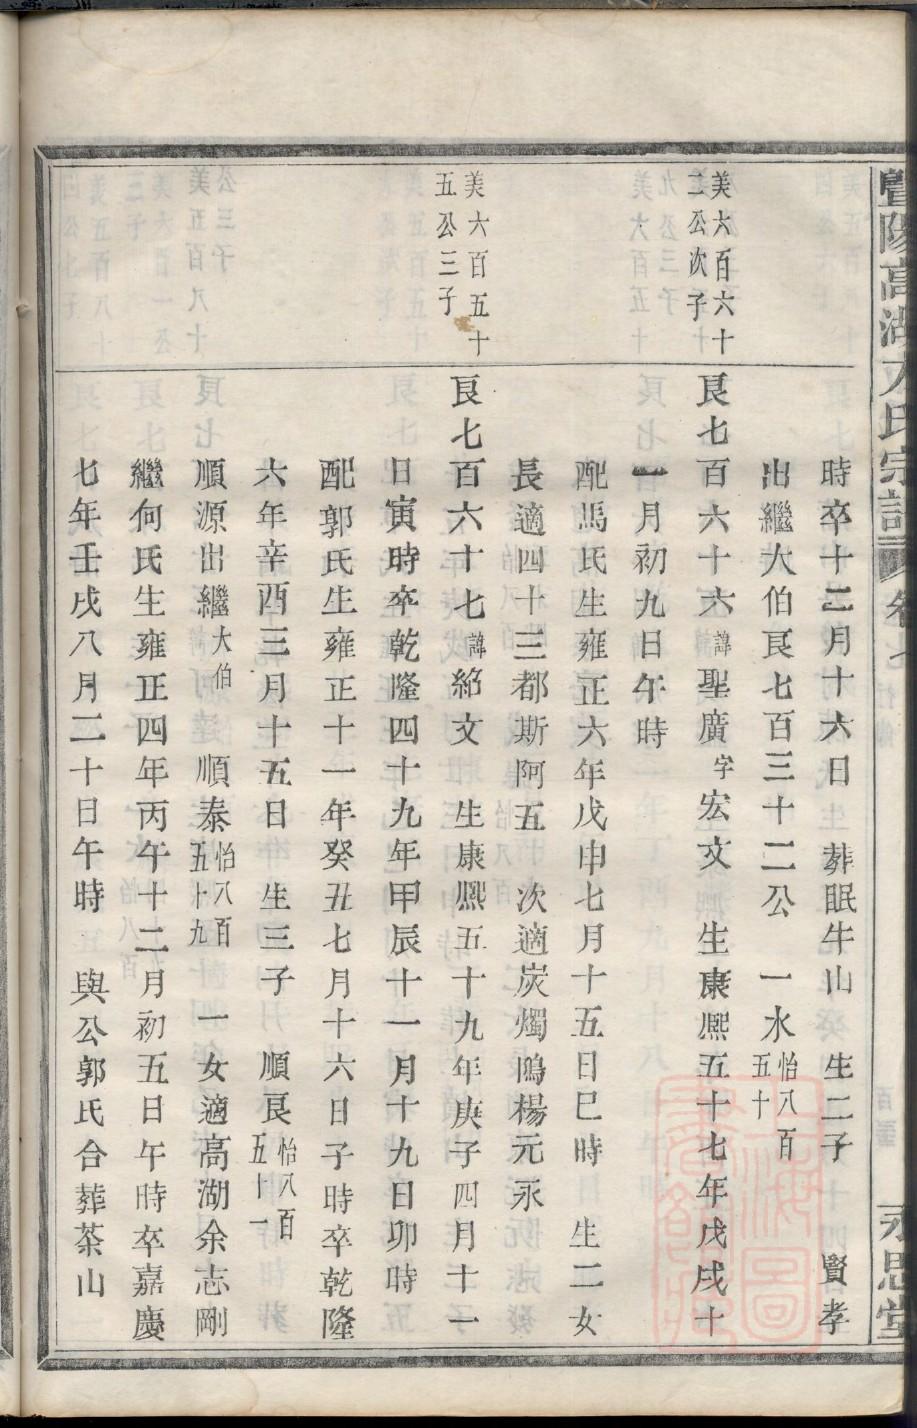 暨陽高湖方氏宗譜 卷七 行傳 永思堂
時卒十二月十六日 葬眠牛山 生二子 賢孝
出繼大伯良七百三十二公 一水怡八百五十
美六百六十二公次子
良七百六十六諱聖廣字宏文 生康熙五十七年戊戌十
一月初九日午時
配馬氏生雍正六年戊申七月十五日巳時 生二女
長適四十三都斯阿五 次適炭燭鳲楊元永
美六百五十五公三子
良七百六十七諱紹文 生康熙五十九年庚子四月十一
日寅時卒乾隆四十九年甲辰十一月十九日卯時
配郭氏生雍正十一年癸丑七月十六日子時卒乾隆
六年辛酉三月十五日 生三子 順良怡八百五十一
順源出繼大伯 順泰怡八百五十九 一女適高湖余志剛
繼何氏生雍正四年丙午十二月初五日午時卒嘉慶
七年壬戌八月二十日午時 與公郭氏合葬茶山